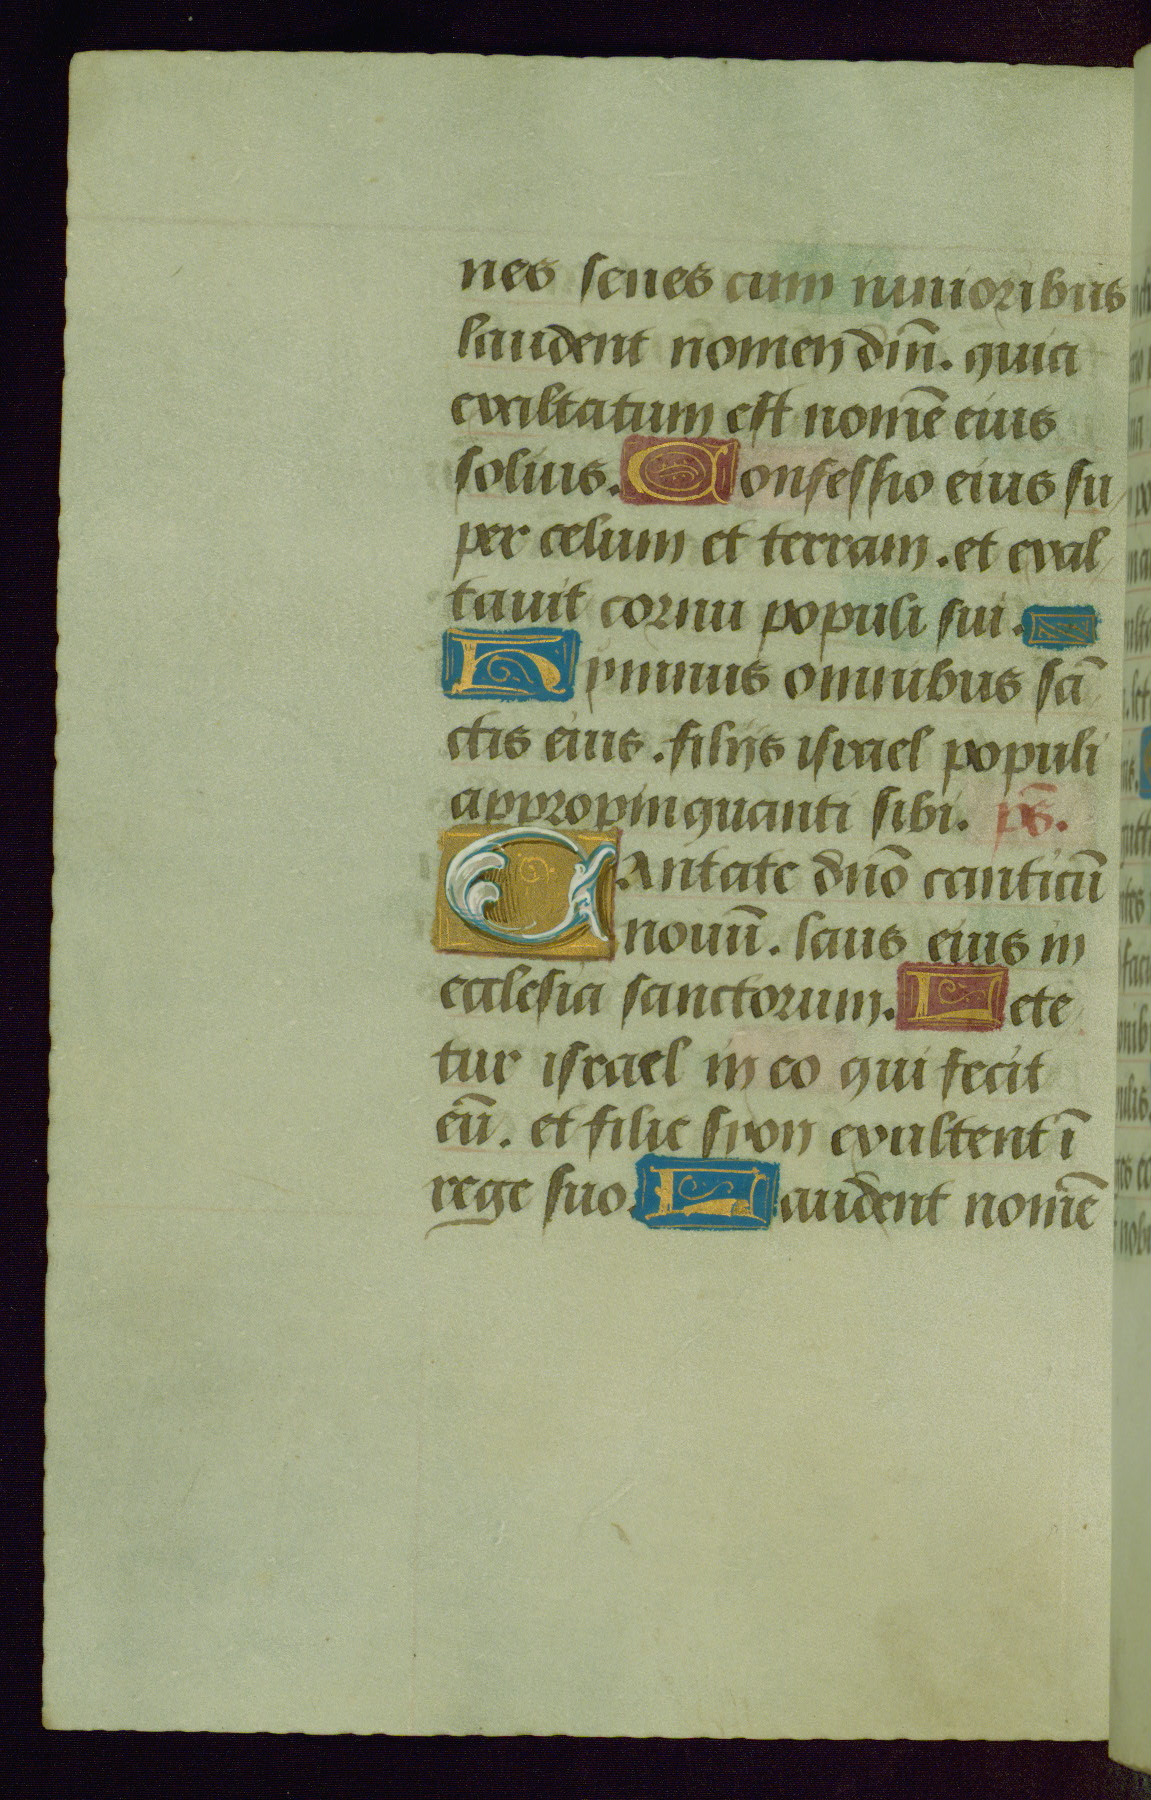 nes senes cum iunioribus
laudent nomen dm̄. quia
exaltatum est nomē eius
solius. Confessio eius su
per celum et terram. et exal
tauit cornu populi sui.
Hymnus omnibus sā
ctis eius. filijs israel populi
appropinquanti sibi. pš.
CAntate dnō canticū
nouū. laus eius in
ecclesia sanctorum. Lete
tur israel in eo qui fecit
eū. et filie syon exaltent ī
rege suo. Laudent nomē